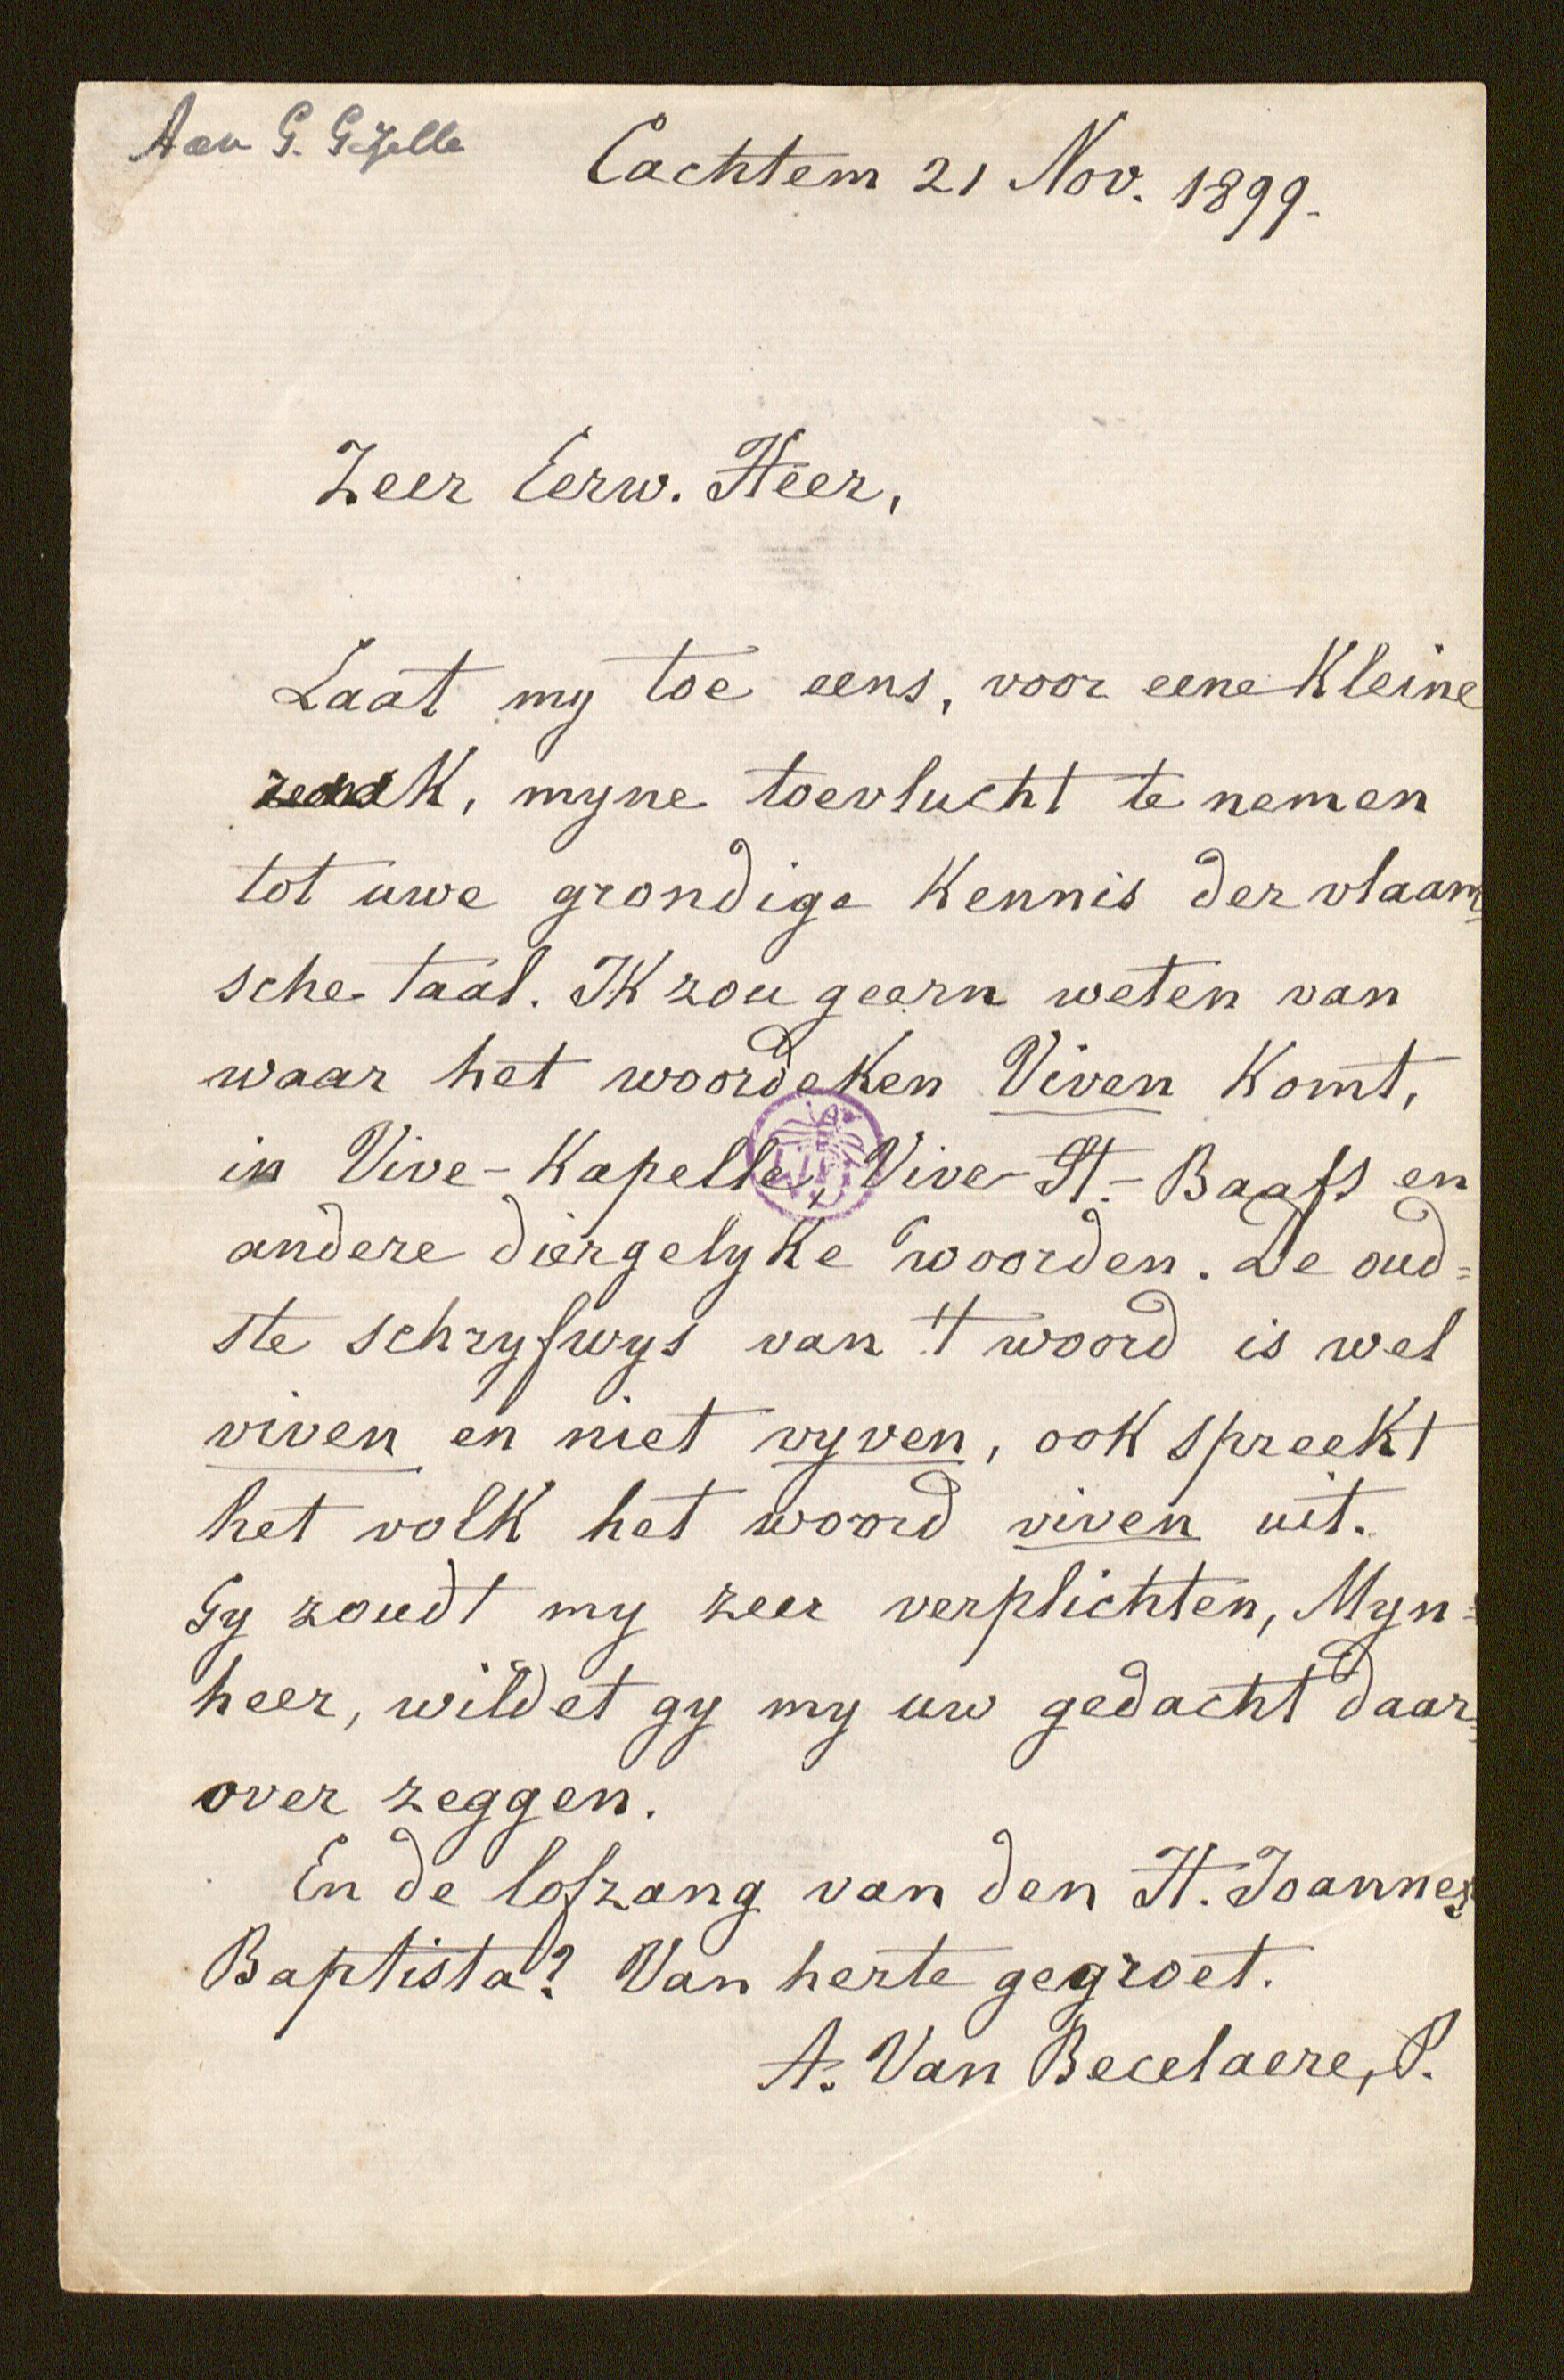 Aan G. Gezelle
Cachtem 21 Nov. 1899.
Zeer Eerw. Heer,
Laat my toe eens, voor eene kleine
zaak, myne toevlucht te nemen
tot uwe grondige kennis der vlaam=
sche taal. Ik zou geern weten van
waar het woordeken Viven komt,
in Vive-Kapelle, Vive-St.-Baafs en
andere diergelyke woorden. De oud=
ste schryfwys van 't woord is wel
viven en niet vyven, ook spreekt
het volk het woord viven uit.
Gy zoudt my zeer verplichten, Myn=
heer, wildet gy my uw gedacht daar=
over zeggen.
En de lofzang van den H. Joannes
Baptista? Van herte gegroet.
A. Van Becelaere, P.